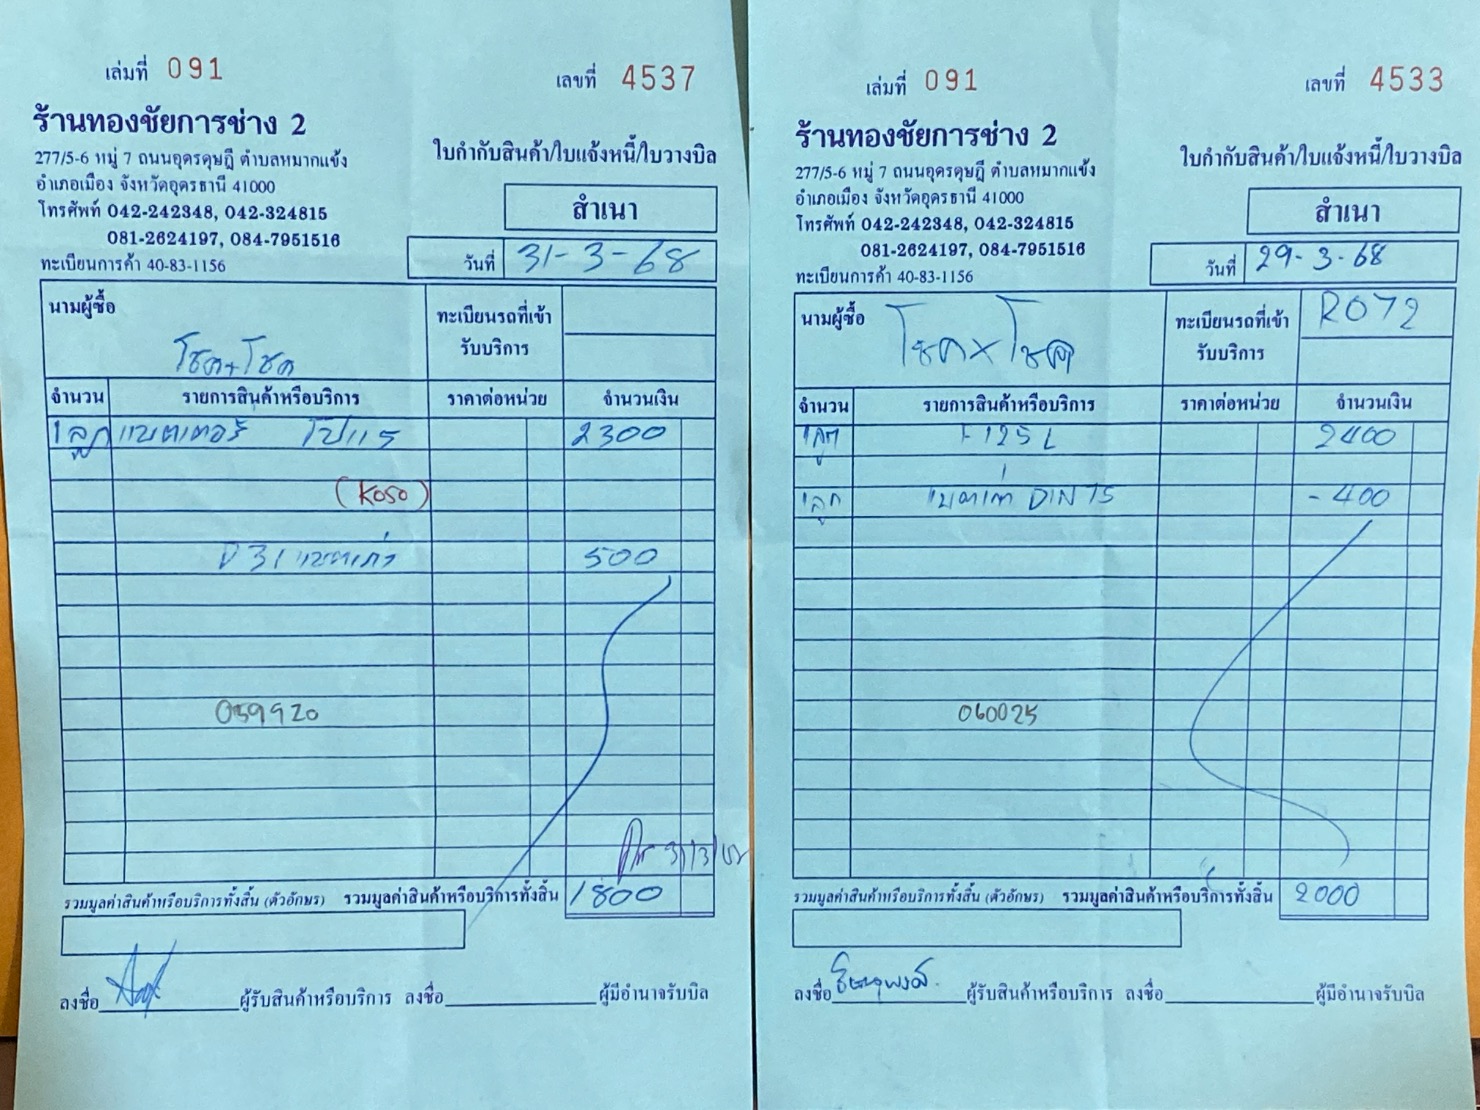 เล่มที่ 091
เลขที่ 4537
ร้านทองชัยการช่าง 2
277/5-6 หมู่ 7 ถนนอุดรดุษฎี ตำบลหมากแข้ง
อำเภอเมือง จังหวัดอุดรธานี 41000
โทรศัพท์ 042-242348, 042-324815
081-2624197, 084-7951516
ทะเบียนการค้า 40-83-1156
ใบกำกับสินค้า/ใบแจ้งหนี้/ใบวางบิล
สำเนา
วันที่ 31-3-68
นามผู้ซื้อ
โชค+โชค
ทะเบียนรถที่เข้า
รับบริการ
จำนวน รายการสินค้าหรือบริการ ราคาต่อหน่วย จำนวนเงิน
1 ลูก แบตเตอรี่ 2300
(KOSO)
31 แบตเก่า 500
059920
31/3/68
รวมมูลค่าสินค้าหรือบริการทั้งสิ้น (ตัวอักษร) รวมมูลค่าสินค้าหรือบริการทั้งสิ้น 1800
ลงชื่อ ผู้รับสินค้าหรือบริการ ลงชื่อ ผู้มีอำนาจรับบิล
เล่มที่ 091
เลขที่ 4533
ร้านทองชัยการช่าง 2
277/5-6 หมู่ 7 ถนนอุดรดุษฎี ตำบลหมากแข้ง
อำเภอเมือง จังหวัดอุดรธานี 41000
โทรศัพท์ 042-242348, 042-324815
081-2624197, 084-7951516
ทะเบียนการค้า 40-83-1156
ใบกำกับสินค้า/ใบแจ้งหนี้/ใบวางบิล
สำเนา
วันที่ 29-3-68
นามผู้ซื้อ
โชค×โชค
ทะเบียนรถที่เข้า
รับบริการ
R072
จำนวน รายการสินค้าหรือบริการ ราคาต่อหน่วย จำนวนเงิน
1 ลูก 125L 2400
1 ลูก แบตเก่า DIN 75 -400
060025
รวมมูลค่าสินค้าหรือบริการทั้งสิ้น (ตัวอักษร) รวมมูลค่าสินค้าหรือบริการทั้งสิ้น 2000
ลงชื่อ ผู้รับสินค้าหรือบริการ ลงชื่อ ผู้มีอำนาจรับบิล